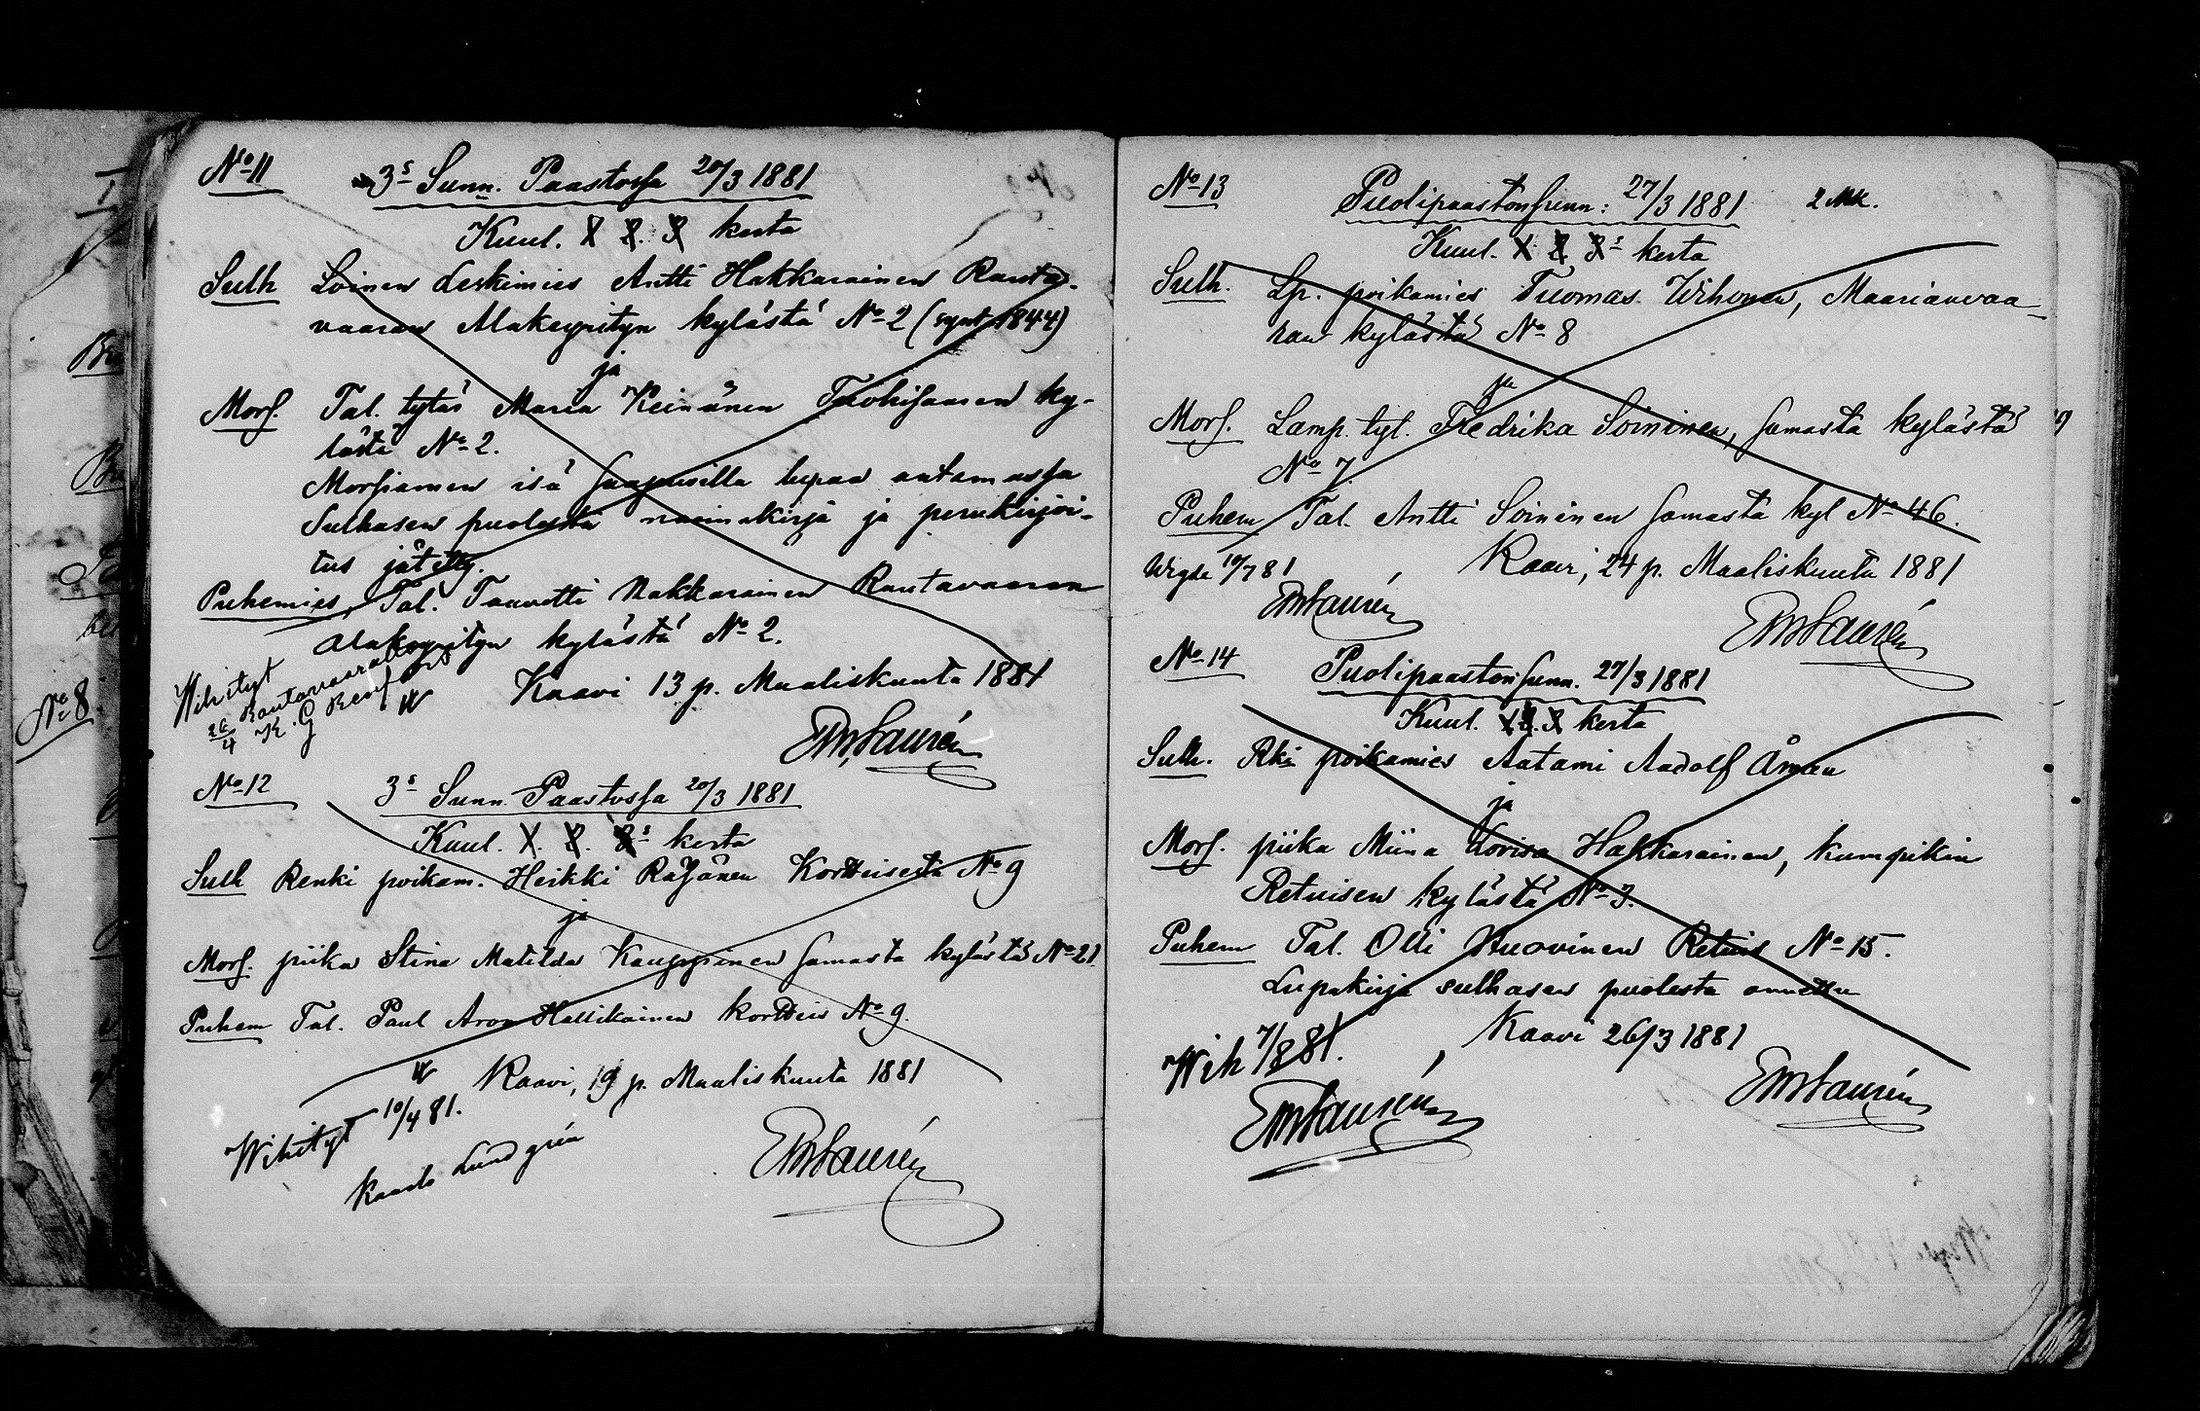 No 11
3s Sunn. Paastossa 20/3 1881
Kuul. 1 2. 3 kerta
Sulh Loinen Leskimies Antti Hakkarainen Rauta-
vaaran Alakeyrityn kylästä No 2 (synt. 1844)
ja
Mors. Tal. tytär Maria Keinänen ky-
lästä No 2.
Morsiamen isä saapuvilla lupaa antamassa
Sulhasen puolesta naimakirja ja perukirjoi-
tus jätetty.
Puhemies, Tal. Taavetti Hakkarainen Rautavaaran
Alakeyrityn kylästä No 2.
Kaavi 13 p. Maaliskuuta 1881
EWLaurén
Wihityt
26/4 Rautavaaralla
K. G
No 12
3s Sunn. Paastossa 20/3 1881
Kuul. 1. 2. 3s kerta
Sulh Renki poikam. Heikki Räsänen Kortteisesta No 9
ja
Mors. piika Stina Matilda Kauppinen samasta kylästä No 21
Puhem Tal. Paul Aron Hallikainen Kortteis No 9.
Kaavi, 19 p. Maaliskuuta 1881
EWLaurén
Wihityt 10/4 81.
Kaarlo Lundgrén
No 8
No 13
Puolipaastonsunn: 27/3 1881 2 Mk.
Kuul. 1 2 3s kerta
Sulh. Lp. poikamies Tuomas Wihonen, Maarianvaa-
ran kylästä No 8
ja
Mors. Lamp. tyt. Fredrika Soininen, samasta kylästä
No 7
Puhem Tal. Antti Soininen samasta kyl No 46.
Kaavi, 24 p. Maaliskuuta 1881
EWLaurén
10/7 81
EWLaurén
No 14
Puolipaastonsunn. 27/3 1881
Kuul. 1. 2. 3 kerta
Sulh. Rki poikamies Aatami Aadolf Åman
ja
Mors. piika Miina Lovisa Hakkarainen, kumpikin
Retuisen kylästä No 3.
Puhem Tal. Olli Huovinen Retuis No 15.
Lupakirja sulhasen puolesta annettu
Kaavi 26/3 1881
EWLaurén
Wih 7/8 81.
EWLaurén